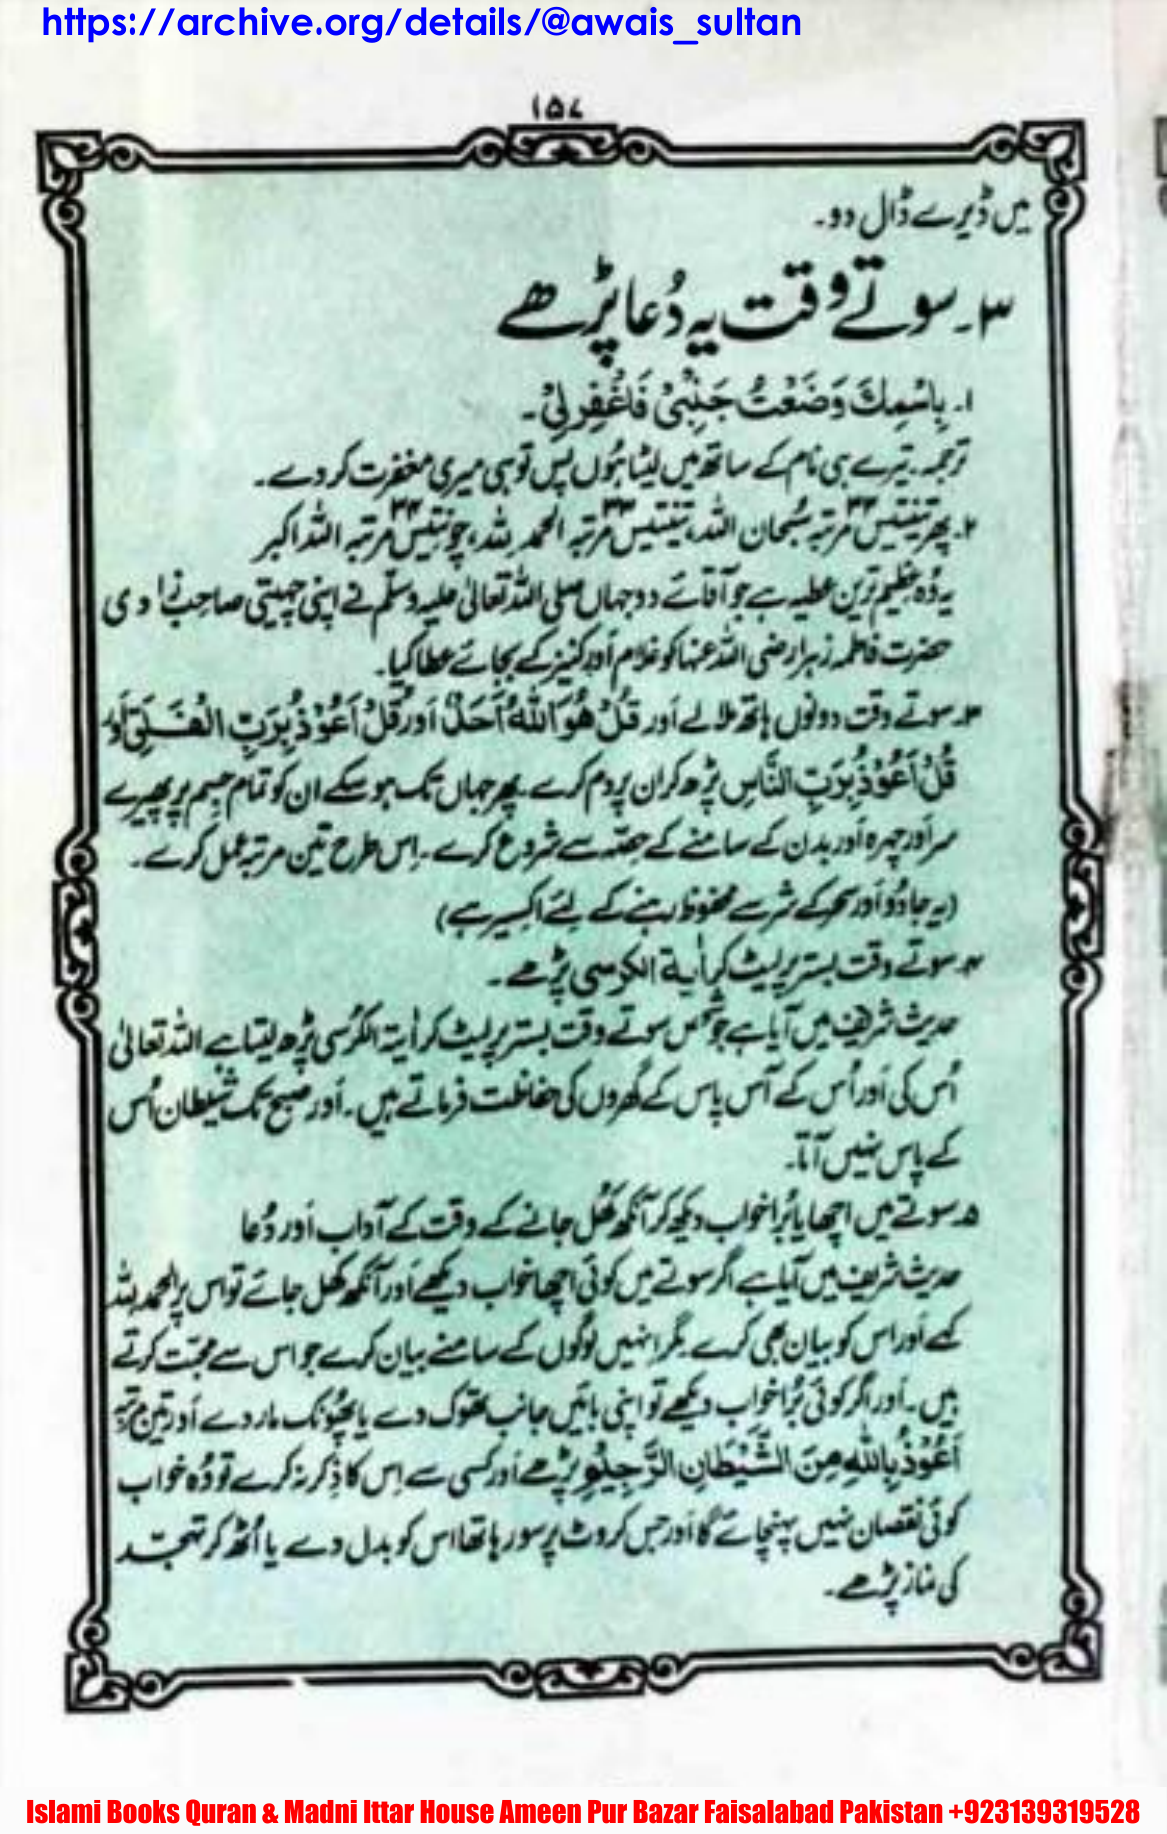 https://archive.org/details/@awais_sultan
۱۵۷
میں ڈیرے ڈال دو۔
۳۔ سوتے وقت یہ دُعا پڑھے
۱۔ بِاسْمِكَ وَضَعْتُ جَنْبِیْ فَاغْفِرْلِیْ۔
ترجمہ۔ تیرے ہی نام کے ساتھ میں لیٹا ہُوں پس تو ہی میری مغفرت کر دے۔
۲۔ پھر تینتیس ۳۳ مرتبہ سُبحان اللہ، تینتیس ۳۳ مرتبہ الحمد للہ، چونتیس ۳۴ مرتبہ اللہ اکبر
یہ وُہ عظیم ترین عطیہ ہے جو آقائے دو جہاں صلی اللہ تعالیٰ علیہ وسلّم نے اپنی چہیتی صاحبزادی
حضرت فاطمہ زہرا رضی اللہ عنہا کو غلام اَور کنیز کے بجائے عطا کیا۔
۳۔ سوتے وقت دونوں ہاتھ ملا لے اَور قُلْ هُوَ اللّٰهُ اَحَدٌ اَور قُلْ اَعُوْذُ بِرَبِّ الْفَلَقِ اَور
قُلْ اَعُوْذُ بِرَبِّ النَّاسِ پڑھ کر ان پر دم کرے۔ پھر جہاں تک ہو سکے ان کو تمام جسم پر پھیرے
سر اَور چہرہ اَور بدن کے سامنے کے حصّہ سے شروع کرے۔ اِس طرح تین مرتبہ عمل کرے۔
(یہ جادُو اَور سحر کے شر سے محفوظ رہنے کے لئے اکسیر ہے)
۴۔ سوتے وقت بستر پر لیٹ کر اٰیة الکرسی پڑھے۔
حدیث شریف میں آیا ہے جو شخص سوتے وقت بستر پر لیٹ کر اٰیتہ الکرُسی پڑھ لیتا ہے اللہ تعالیٰ
اُس کی اَور اُس کے آس پاس کے گھروں کی حفاظت فرماتے ہیں۔ اَور صبح تک شیطان اُس
کے پاس نہیں آتا۔
۵۔ سوتے میں اچھا یا بُرا خواب دیکھ کر آنکھ کھُل جانے کے وقت کے آداب اَور دُعا
حدیث شریف میں آیا ہے اگر سوتے میں کوئی اچھا خواب دیکھے اَور آنکھ کھل جائے تو اس پر الحمدللہ
کہے اَور اس کو بیان بھی کرے مگر انہیں لوگوں کے سامنے بیان کرے جو اس سے محبّت کرتے
ہیں۔ اَور اگر کوئی بُرا خواب دیکھے تو اپنی بائیں جانب تھوک دے یا پھُونک مار دے اَور تین مرتبہ
اَعُوْذُ بِاللّٰهِ مِنَ الشَّيْطَانِ الرَّجِيْمِ پڑھے اَور کسی سے اِس کا ذِکر نہ کرے تو وُہ خواب
کوئی نقصان نہیں پہنچائے گا اَور جس کروٹ پر سو رہا تھا اس کو بدل دے یا اُٹھ کر تہجّد
کی نماز پڑھے۔
Islami Books Quran & Madni Ittar House Ameen Pur Bazar Faisalabad Pakistan +923139319528